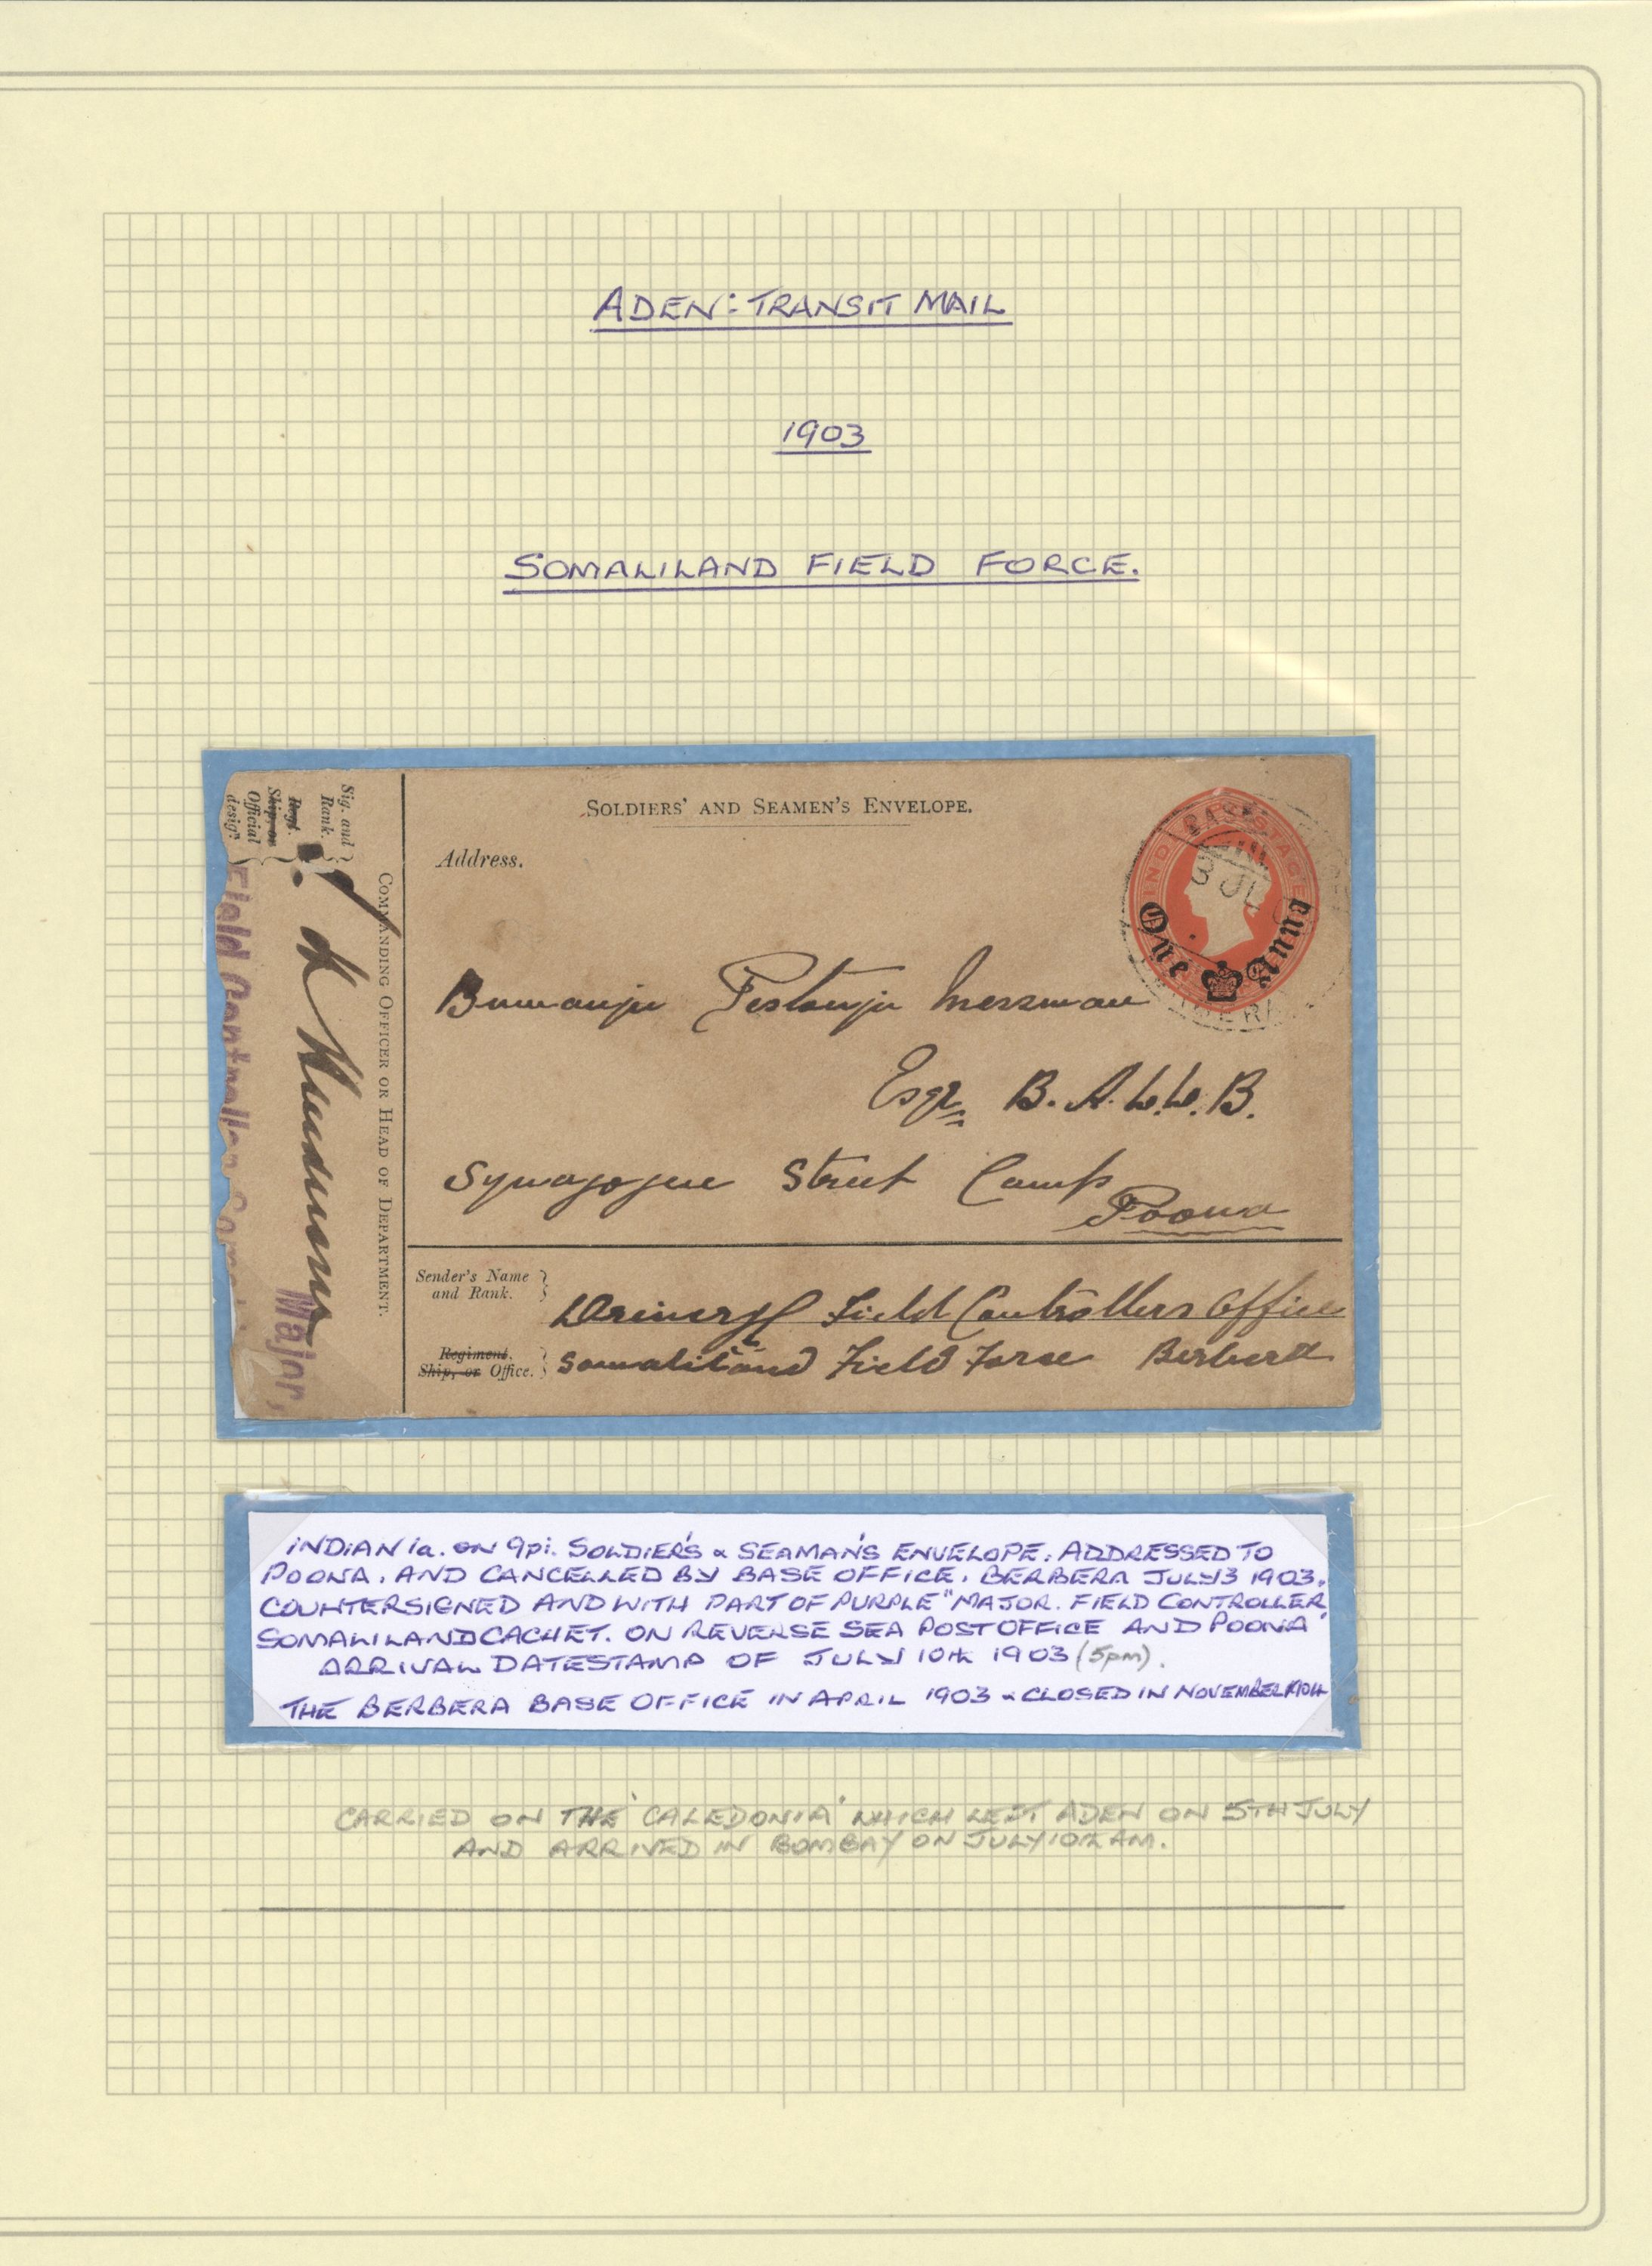 ADEN: TRANSIT MAIL
1903
SOMALILAND FIELD FORCE.
SOLDIERS' AND SEAMEN'S ENVELOPE.
Address.
INDIA POSTAGE
One Anna
3 JU
Pestonju
Esqr B. A. L.L. B.
Synagogue Street Camp
Poona
Sender's Name
and Rank.
Field Controllers Office
Regiment,
Ship, or Office.
Somaliland Field Force Berbera
COMMANDING OFFICER OR HEAD OF DEPARTMENT.
Sig. and
Rank.
Regt.
Ship, or
Official
design.
Major,
Field Controller, Somal
INDIAN 1a. ON 9pi. SOLDIER'S & SEAMAN'S ENVELOPE. ADDRESSED TO
POONA. AND CANCELLED BY BASE OFFICE. BERBERA JULY 3 1903.
COUNTERSIGNED AND WITH PART OF PURPLE "MAJOR. FIELD CONTROLLER
SOMALILAND CACHET. ON REVERSE SEA POST OFFICE AND POONA'
ARRIVAL DATESTAMP OF JULY 10th 1903 (5pm).
THE BERBERA BASE OFFICE IN APRIL 1903 & CLOSED IN NOVEMBER 1904
CARRIED ON THE 'CALEDONIA' WHICH LEFT ADEN ON 5TH JULY
AND ARRIVED IN BOMBAY ON JULY 10th AM.